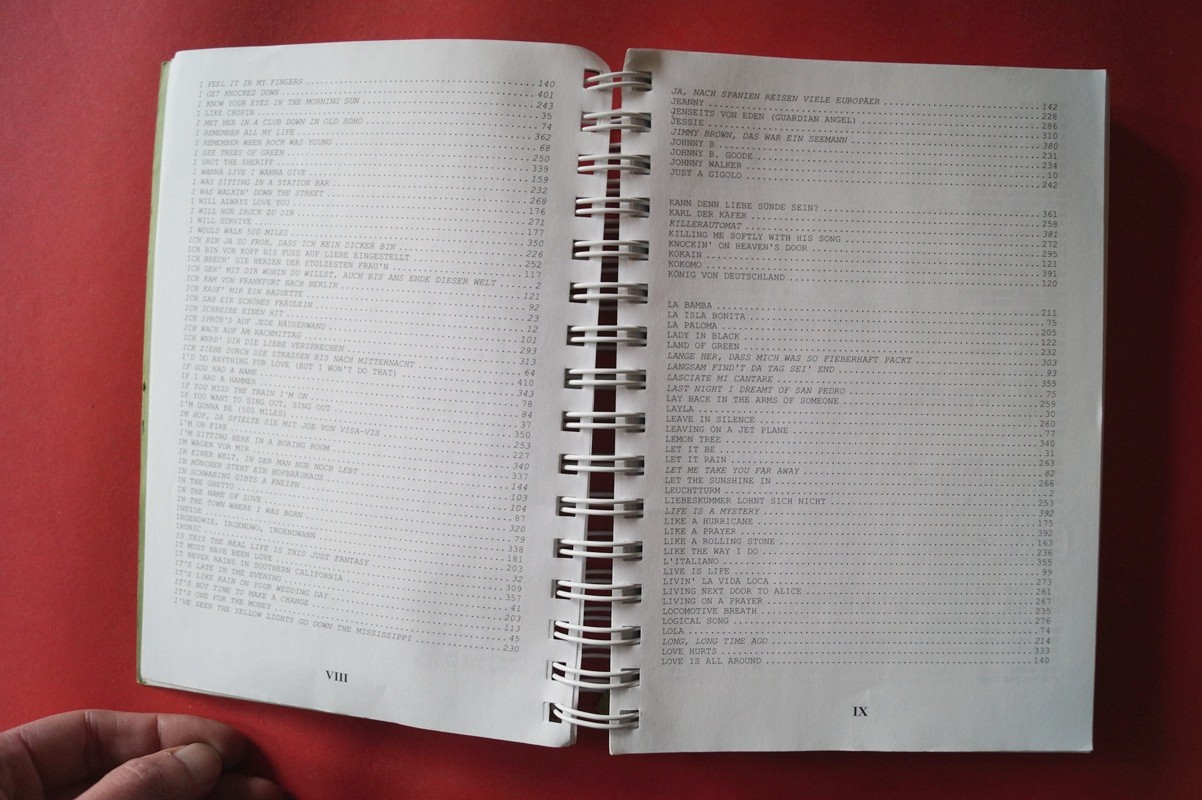 I FEEL IT IN MY FINGERS 140
I GET KNOCKED DOWN 401
I KNOW YOUR EYES IN THE MORNING SUN 243
I LIKE CHOPIN 35
I MET HER IN A CLUB DOWN IN OLD SOHO 74
I REMEMBER ALL MY LIFE 362
I REMEMBER WHEN ROCK WAS YOUNG 68
I SEE TREES OF GREEN 250
I SHOT THE SHERIFF 339
I WANNA LIVE I WANNA GIVE 159
I WAS SITTING IN A STATION BAR 232
I WAS WALKIN' DOWN THE STREET 268
I WILL ALWAYS LOVE YOU 176
I WILL NUR ZRÜCK ZU DIR 271
I WILL SURVIVE 177
I WOULD WALK 500 MILES 350
ICH BIN JA SO FROH, DASS ICH KEIN DICKER BIN 226
ICH BIN VON KOPF BIS FUSS AUF LIEBE EINGESTELLT 252
ICH BRECH' DIE HERZEN DER STOLZESTEN FRAU'N 117
ICH GEH' MIT DIR WOHIN DU WILLST, AUCH BIS ANS ENDE DIESER WELT 2
ICH KAM VON FRANKFURT NACH BERLIN 121
ICH KAUF' MIR EIN BAGUETTE 92
ICH SAH EIN SCHÖNES FRÄULEIN 23
ICH SCHREIBE EINEN HIT 12
ICH SPRÜH'S AUF JEDE HÄUSERWAND 101
ICH WACH AUF AM NACHMITTAG 293
ICH WERD' DIR DIE LIEBE VERSPRECHEN 313
ICH ZIEHE DURCH DIE STRASSEN BIS NACH MITTERNACHT 64
I'D DO ANYTHING FOR LOVE (BUT I WON'T DO THAT) 410
IF GOD HAD A NAME 343
IF I HAD A HAMMER 78
IF YOU MISS THE TRAIN I'M ON 84
IF YOU WANT TO SING OUT, SING OUT 37
I'M GONNA BE (500 MILES) 350
IM HOF, DA SPIELTE SIE MIT JOE VON VISA-VIS 253
I'M ON FIRE 227
I'M SITTING HERE IN A BORING ROOM 340
IM WAGEN VOR MIR 337
IN EINER WELT, IN DER MAN NUR NOCH LEBT 144
IN MÜNCHEN STEHT EIN HOFBRÄUHAUS 103
IN SCHWABING GIBTS A KNEIPN 104
IN THE GHETTO 87
IN THE NAME OF LOVE 320
IN THE TOWN WHERE I WAS BORN 79
INSIDE 338
IRGENDWIE, IRGENDWO, IRGENDWANN 181
IRONIC 203
IS THIS THE REAL LIFE IS THIS JUST FANTASY 32
IT MUST HAVE BEEN LOVE 309
IT NEVER RAINS IN SOUTHERN CALIFORNIA 357
IT'S LATE IN THE EVENING 41
IT'S LIKE RAIN ON YOUR WEDDING DAY 203
IT'S NOT TIME TO MAKE A CHANGE 113
IT'S ONE FOR THE MONEY 45
I'VE SEEN THE YELLOW LIGHTS GO DOWN THE MISSISSIPPI 230
VIII
JA, NACH SPANIEN REISEN VIELE EUROPÄER 142
JEANNY 228
JENSEITS VON EDEN (GUARDIAN ANGEL) 286
JESSIE 310
JIMMY BROWN, DAS WAR EIN SEEMANN 380
JOHNNY B 231
JOHNNY B. GOODE 234
JOHNNY WALKER 10
JUST A GIGOLO 242
KANN DENN LIEBE SÜNDE SEIN? 361
KARL DER KÄFER 258
KILLERAUTOMAT 381
KILLING ME SOFTLY WITH HIS SONG 272
KNOCKIN' ON HEAVEN'S DOOR 295
KOKAIN 121
KOKOMO 391
KÖNIG VON DEUTSCHLAND 120
LA BAMBA 211
LA ISLA BONITA 75
LA PALOMA 205
LADY IN BLACK 122
LAND OF GREEN 232
LANGE HER, DASS MICH WAS SO FIEBERHAFT PACKT 303
LANGSAM FIND'T DA TAG SEI' END 93
LASCIATE MI CANTARE 355
LAST NIGHT I DREAMT OF SAN PEDRO 75
LAY BACK IN THE ARMS OF SOMEONE 259
LAYLA 30
LEAVE IN SILENCE 260
LEAVING ON A JET PLANE 77
LEMON TREE 340
LET IT BE 31
LET IT RAIN 263
LET ME TAKE YOU FAR AWAY 82
LET THE SUNSHINE IN 266
LEUCHTTURM 2
LIEBESKUMMER LOHNT SICH NICHT 253
LIFE IS A MYSTERY 392
LIKE A HURRICANE 175
LIKE A PRAYER 392
LIKE A ROLLING STONE 163
LIKE THE WAY I DO 236
L'ITALIANO 355
LIVE IS LIFE 99
LIVIN' LA VIDA LOCA 273
LIVING NEXT DOOR TO ALICE 261
LIVING ON A PRAYER 267
LOCOMOTIVE BREATH 235
LOGICAL SONG 276
LOLA 74
LONG, LONG TIME AGO 214
LOVE HURTS 333
LOVE IS ALL AROUND 140
IX